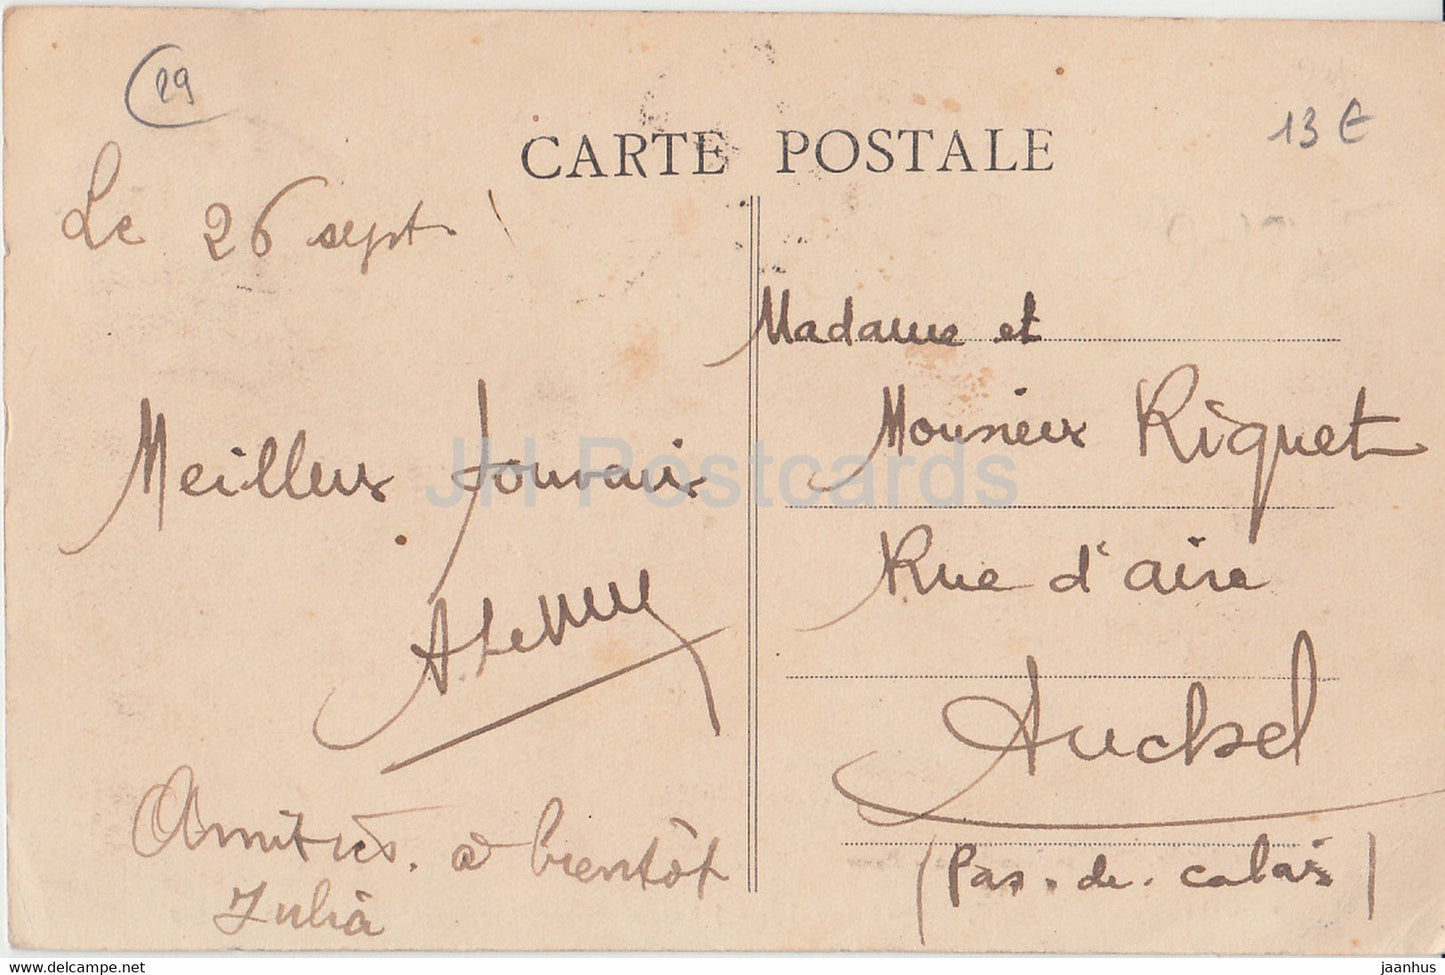 29
13 €
CARTE POSTALE
Le 26 sept
Meilleurs souvenirs
Amitiés. à bientôt
Julia
Madame et
Monsieur Riquet
Rue d'aire
Auchel
(Pas. de. calais)
JH Postcards
jaanhus.com